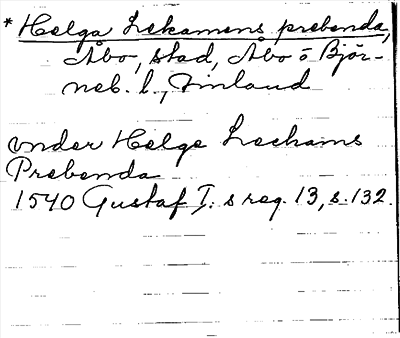 * Helga Lekamens prebenda,
Åbo, stad, Åbo o Björ-
neb. l., Finland
vnder Helge Leckams
Prebenda
1540 Gustaf I. s reg. 13, s. 132.